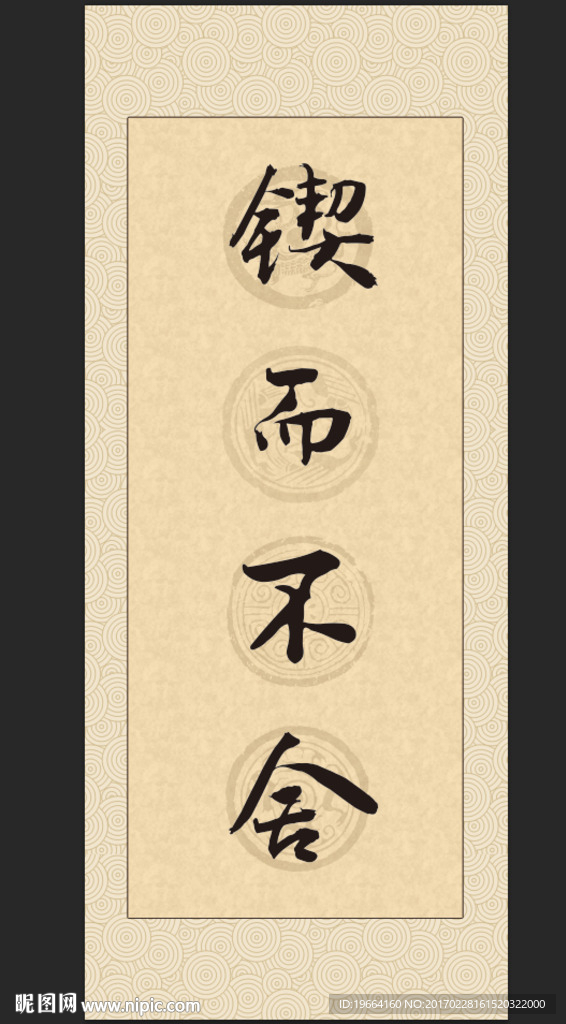 锲
而
不
舍
昵图网 www.nipic.com
ID:19664160 NO:20170228161520322000